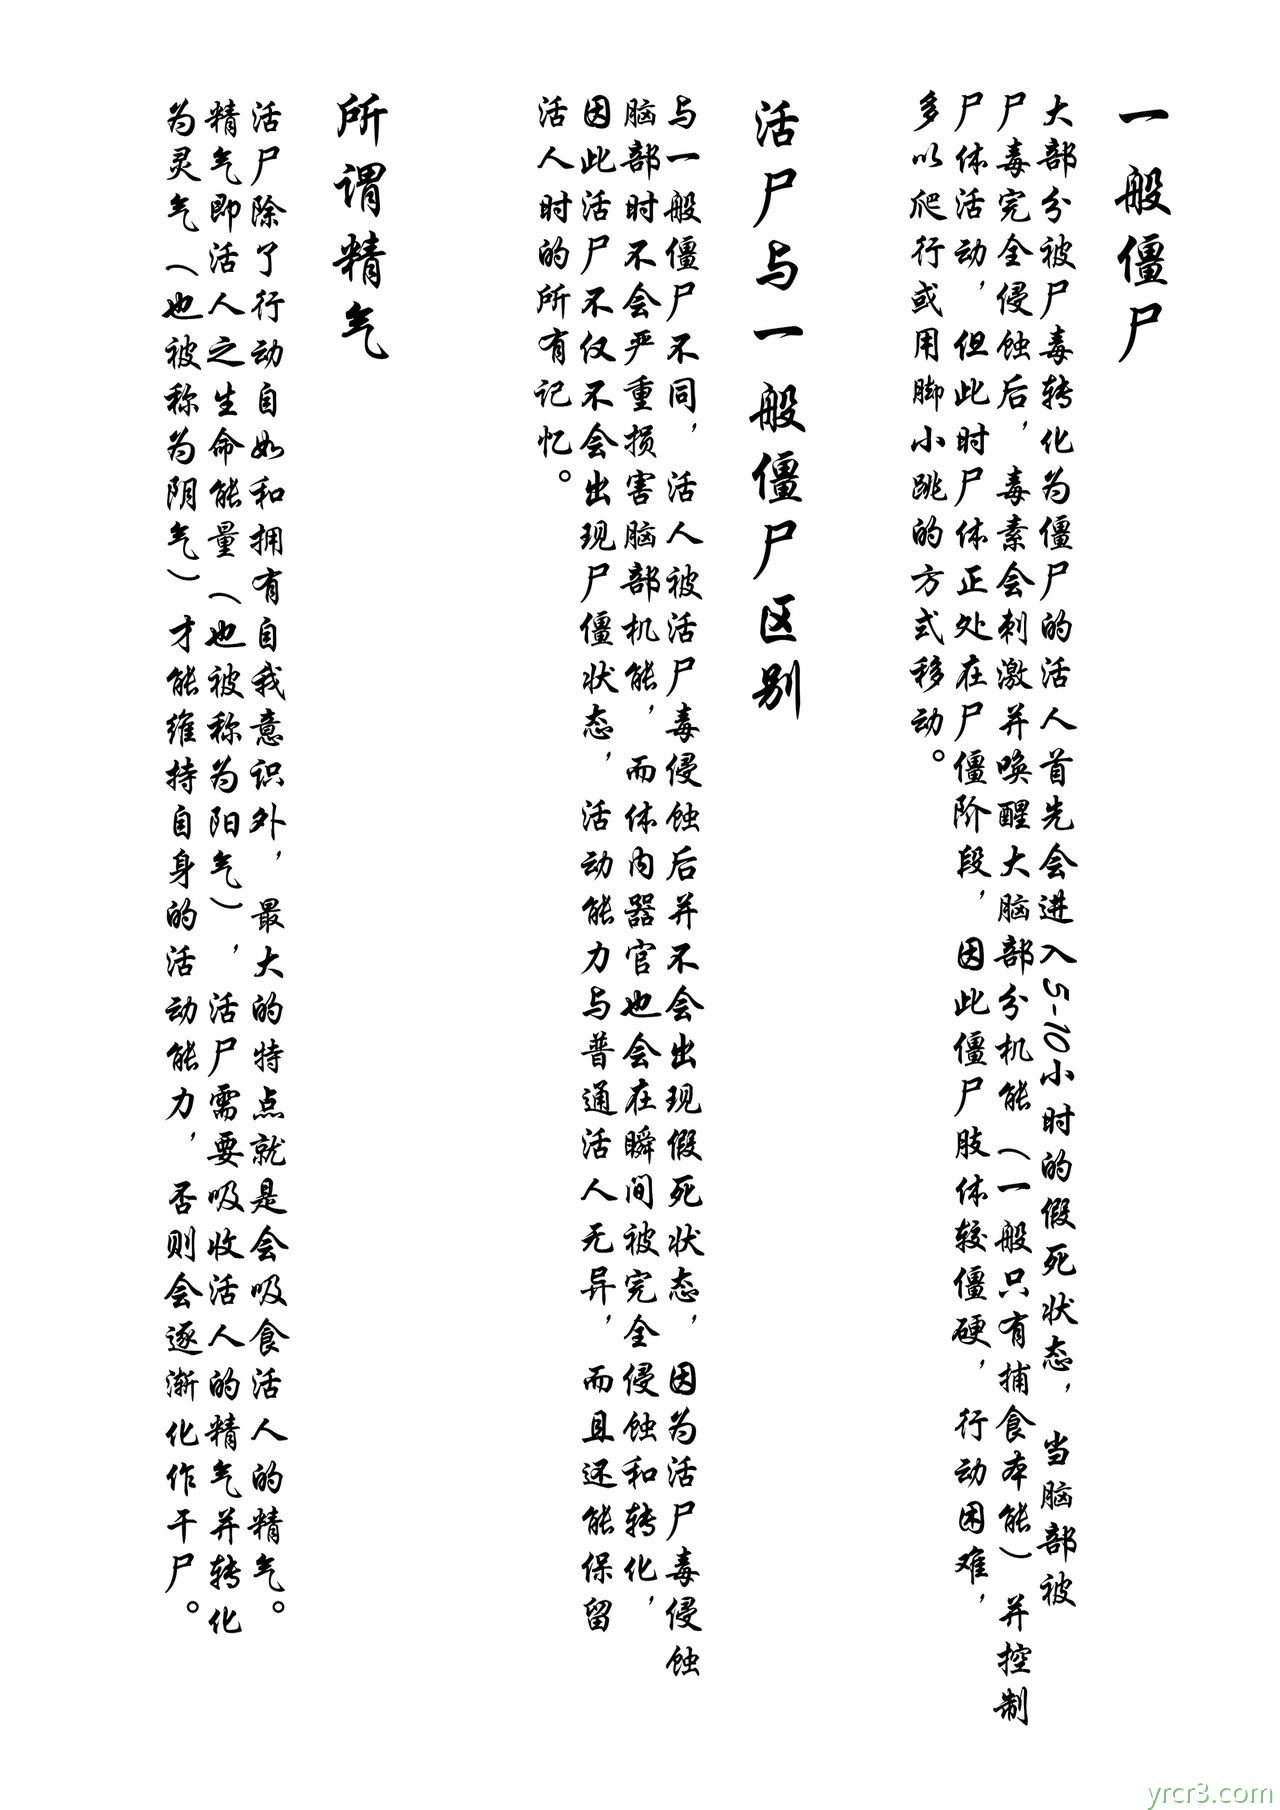 一般僵尸
大部分被尸毒转化为僵尸的活人首先会进入5-10小时的假死状态，当脑部被
尸毒完全侵蚀后，毒素会刺激并唤醒大脑部分机能（一般只有捕食本能）并控制
尸体活动，但此时尸体正处在尸僵阶段，因此僵尸肢体较僵硬，行动困难，
多以爬行或用脚小跳的方式移动。
活尸与一般僵尸区别
与一般僵尸不同，活人被活尸毒侵蚀后并不会出现假死状态，因为活尸毒侵蚀
脑部时不会严重损害脑部机能，而体内器官也会在瞬间被完全侵蚀和转化，
因此活尸不仅不会出现尸僵状态，活动能力与普通活人无异，而且还能保留
活人时的所有记忆。
所谓精气
活尸除了行动自如和拥有自我意识外，最大的特点就是会吸食活人的精气。
精气即活人之生命能量（也被称为阳气），活尸需要吸收活人的精气并转化
为灵气（也被称为阴气）才能维持自身的活动能力，否则会逐渐化作干尸。
yrcr3.com